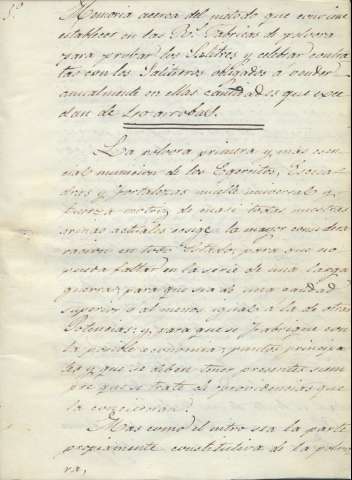 5º
Memoria acerca del metodo que conviene
establecer en las Rs. Fabricas de polvora
para probar los Salitres y celebrar contra
tas con los Salitreros obligados a vender
anualmente en ellas cantidades que exce
dan de 150 arrobas.
La polvora primera y mas esen
cial municion de los Egercitos, Escua
dras y fortalezas muelle universal o
fuerza motriz de casi todas nuestras
armas actuales exige la mayor conside
racion en todo Estado; para que no
pueda faltar en la serie de una larga
guerra; para que sea de una calidad
superior o al menos igual a la de otras
Potencias; y para que se fabrique con
la posible economia; puntos principa
les y que se deben tener presentes siem
pre que se trate de providencias que
la conciernan.
Mas como el nitro sea la parte
propiamente constitutiva de la polvo
ra,